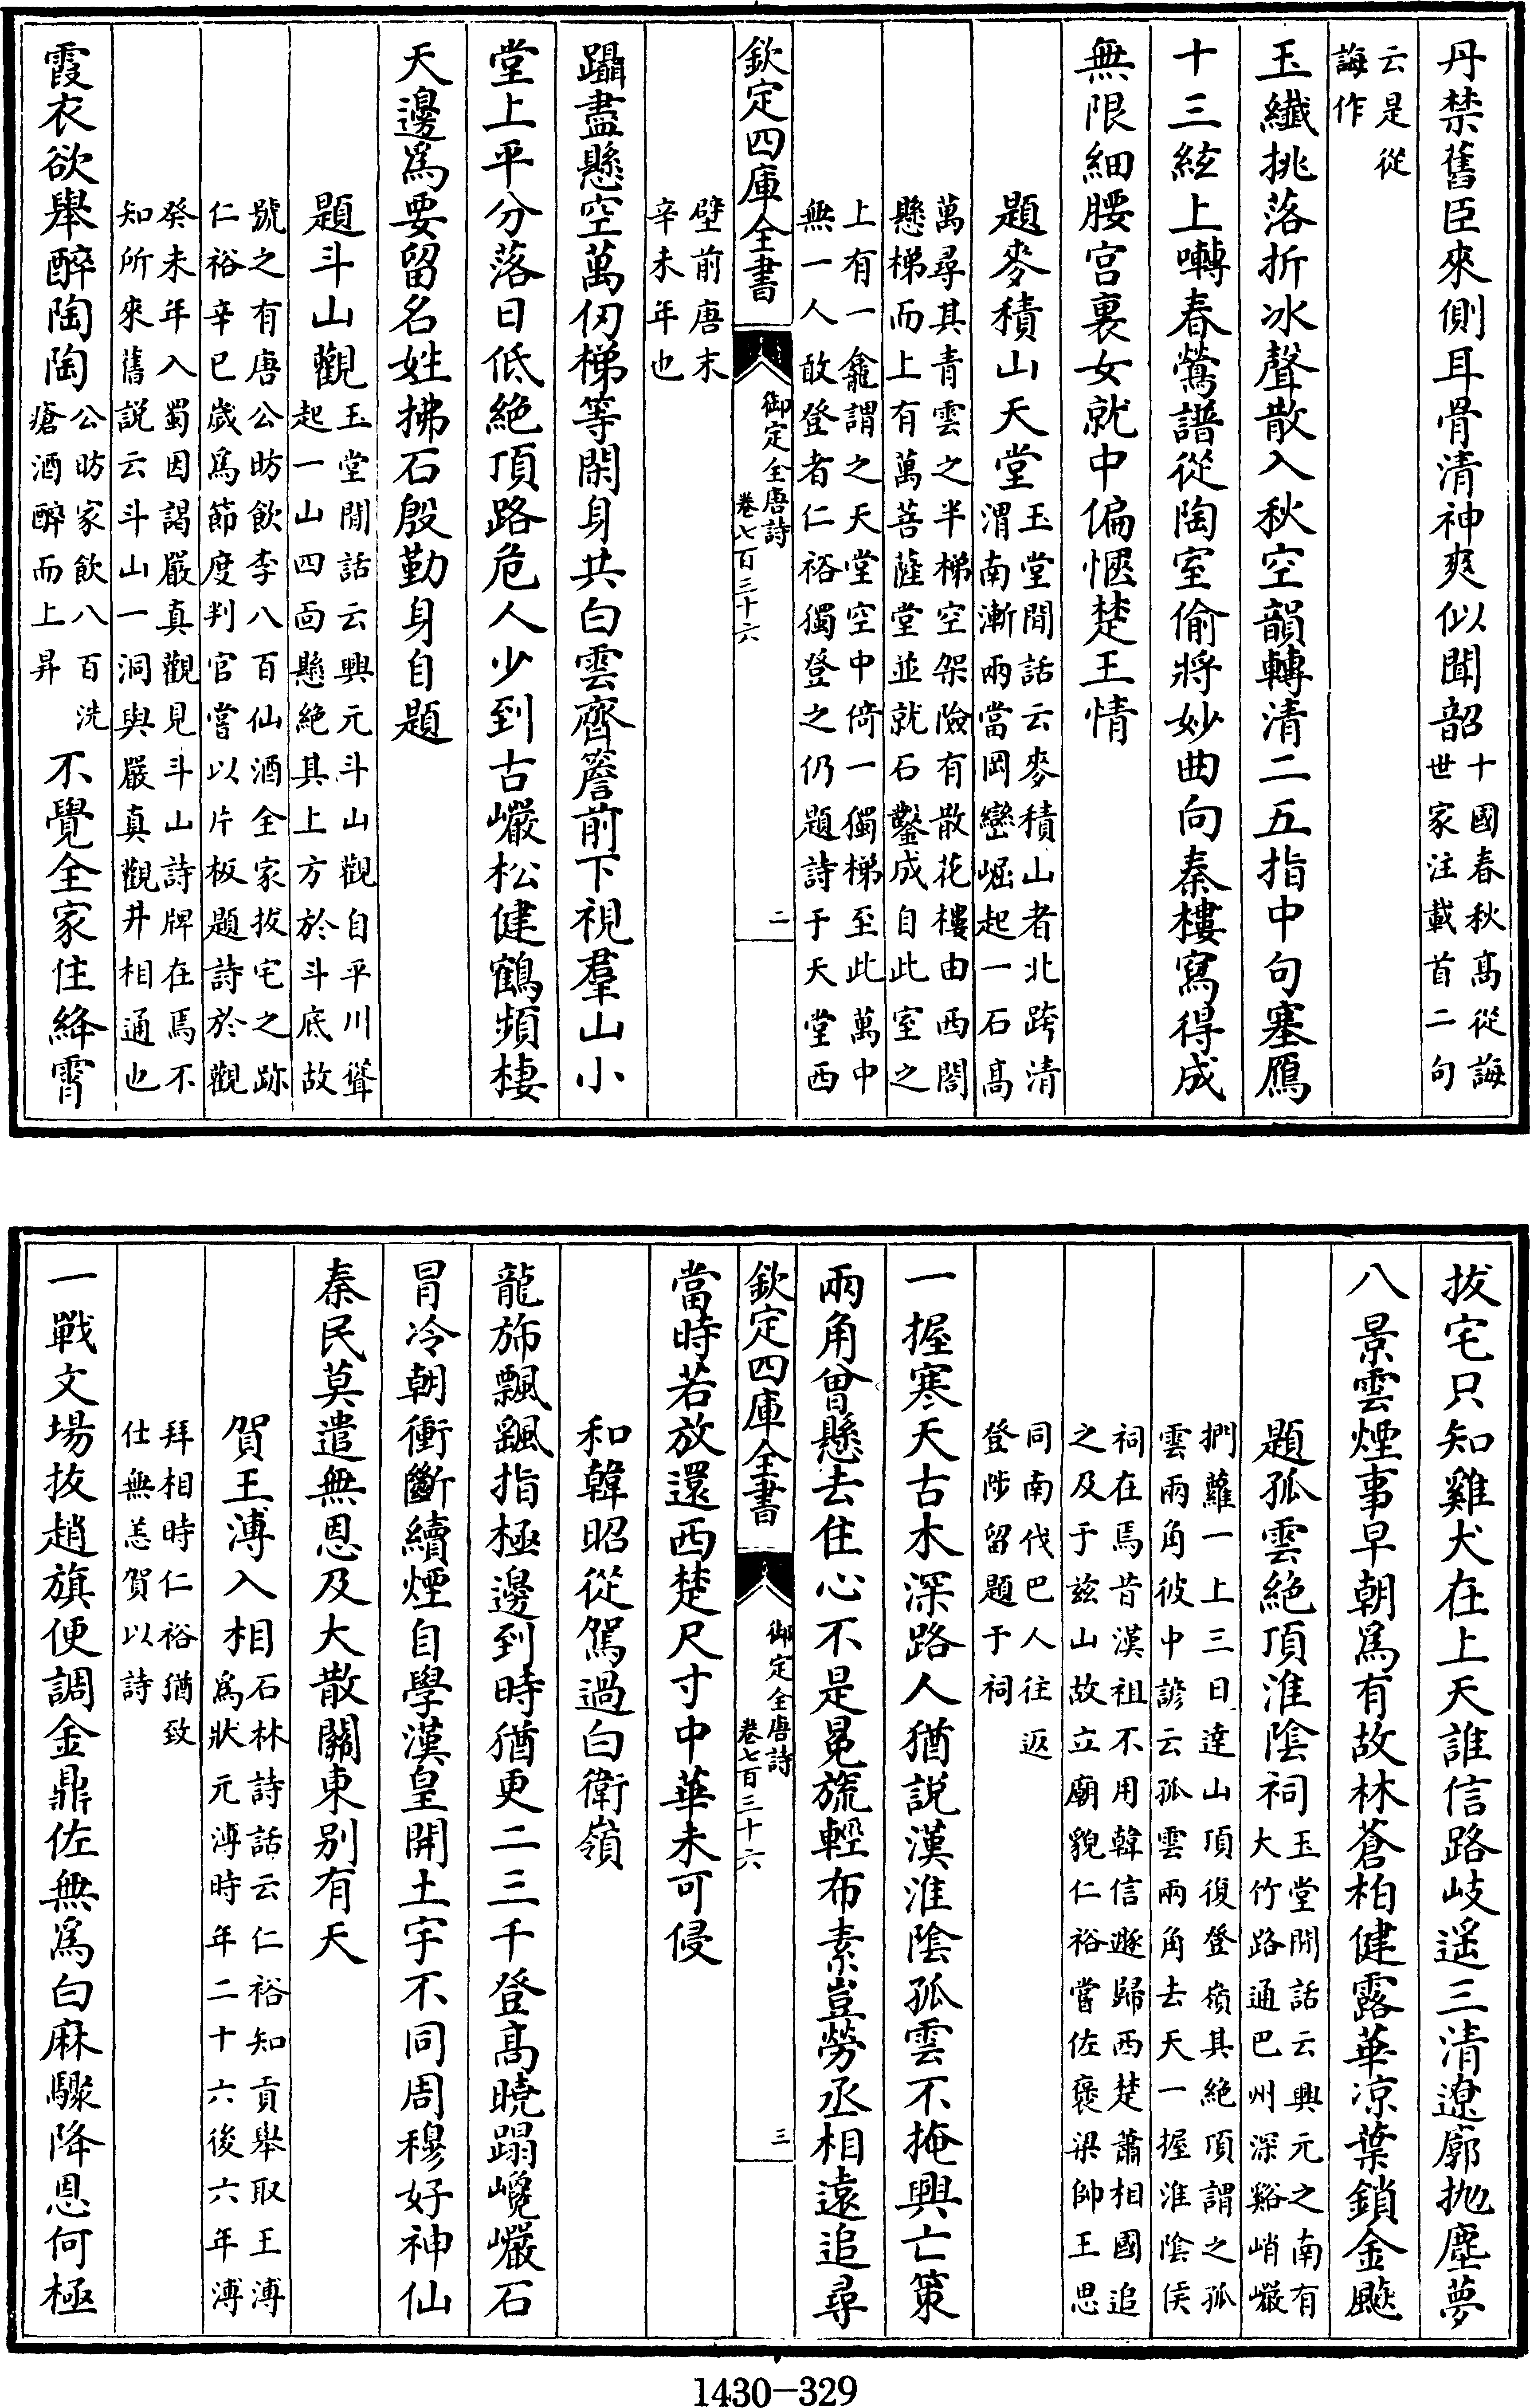 丹禁舊臣來側耳骨清神爽似聞韶十國春秋高從誨世家注載首二句
云是從誨作
玉纎挑落折冰聲散入秋空韻轉清二五指中句塞鴈
十三絃上囀春鶯譜從陶室偷將妙曲向秦樓寫得成
無限細腰宮裏女就中偏愜楚王情
題麥積山天堂玉堂閒話云麥積山者北跨清渭南漸兩當岡巒崛起一石高
萬尋其青雲之半梯空架險有散花樓由西閣懸梯而上有萬菩薩堂並就石鑿成自此室之
上有一龕謂之天堂空中倚一獨梯至此萬中無一人敢登者仁裕獨登之仍題詩于天堂西
欽定四庫全書 御定全唐詩 卷七百三十六 二
壁前唐末辛未年也
躡盡懸空萬仞梯等閑身共白雲齊簷前下視羣山小
堂上平分落日低絶頂路危人少到古巖松健鶴頻棲
天邊爲要留名姓拂石殷勤身自題
題斗山觀玉堂閒話云興元斗山觀自平川聳起一山四面懸絶其上方於斗底故
號之有唐公昉飲李八百仙酒全家拔宅之跡仁裕辛巳歲爲節度判官嘗以片板題詩於觀
癸未年入蜀因謁嚴真觀見斗山詩牌在焉不知所來舊説云斗山一洞與嚴真觀井相通也
霞衣欲舉醉陶陶公昉家飲八百洗瘡酒醉而上昇不覺全家住絳霄
拔宅只知雞犬在上天誰信路岐遥三清遼廓抛塵夢
八景雲煙事早朝爲有故林蒼柏健露華凉葉鎖金飈
題孤雲絶頂淮陰祠玉堂閒話云興元之南有大竹路通巴州深谿峭巖
捫蘿一上三日達山頂復登嶺其絶頂謂之孤雲兩角彼中諺云孤雲兩角去天一握淮陰侯
祠在焉昔漢祖不用韓信遯歸西楚蕭相國追之及于兹山故立廟貌仁裕嘗佐褒梁帥王思
同南伐巴人往返登陟留題于祠
一握寒天古木深路人猶説漢淮陰孤雲不掩興亡策
兩角曾懸去住心不是冕旒輕布素豈勞丞相遠追尋
欽定四庫全書 御定全唐詩 卷七百三十六 三
當時若放還西楚尺寸中華未可侵
和韓昭從駕過白衛嶺
龍斾飄飖指極邊到時猶更二三千登高曉蹋巉巖石
冒冷朝衝斷續煙自學漢皇開土宇不同周穆好神仙
秦民莫遣無恩及大散關東别有天
賀王溥入相石林詩話云仁裕知貢舉取王溥爲狀元溥時年二十六後六年溥
拜相時仁裕猶致仕無恙賀以詩
一戰文場拔趙旗便調金鼎佐無爲白麻驟降恩何極
1430—329